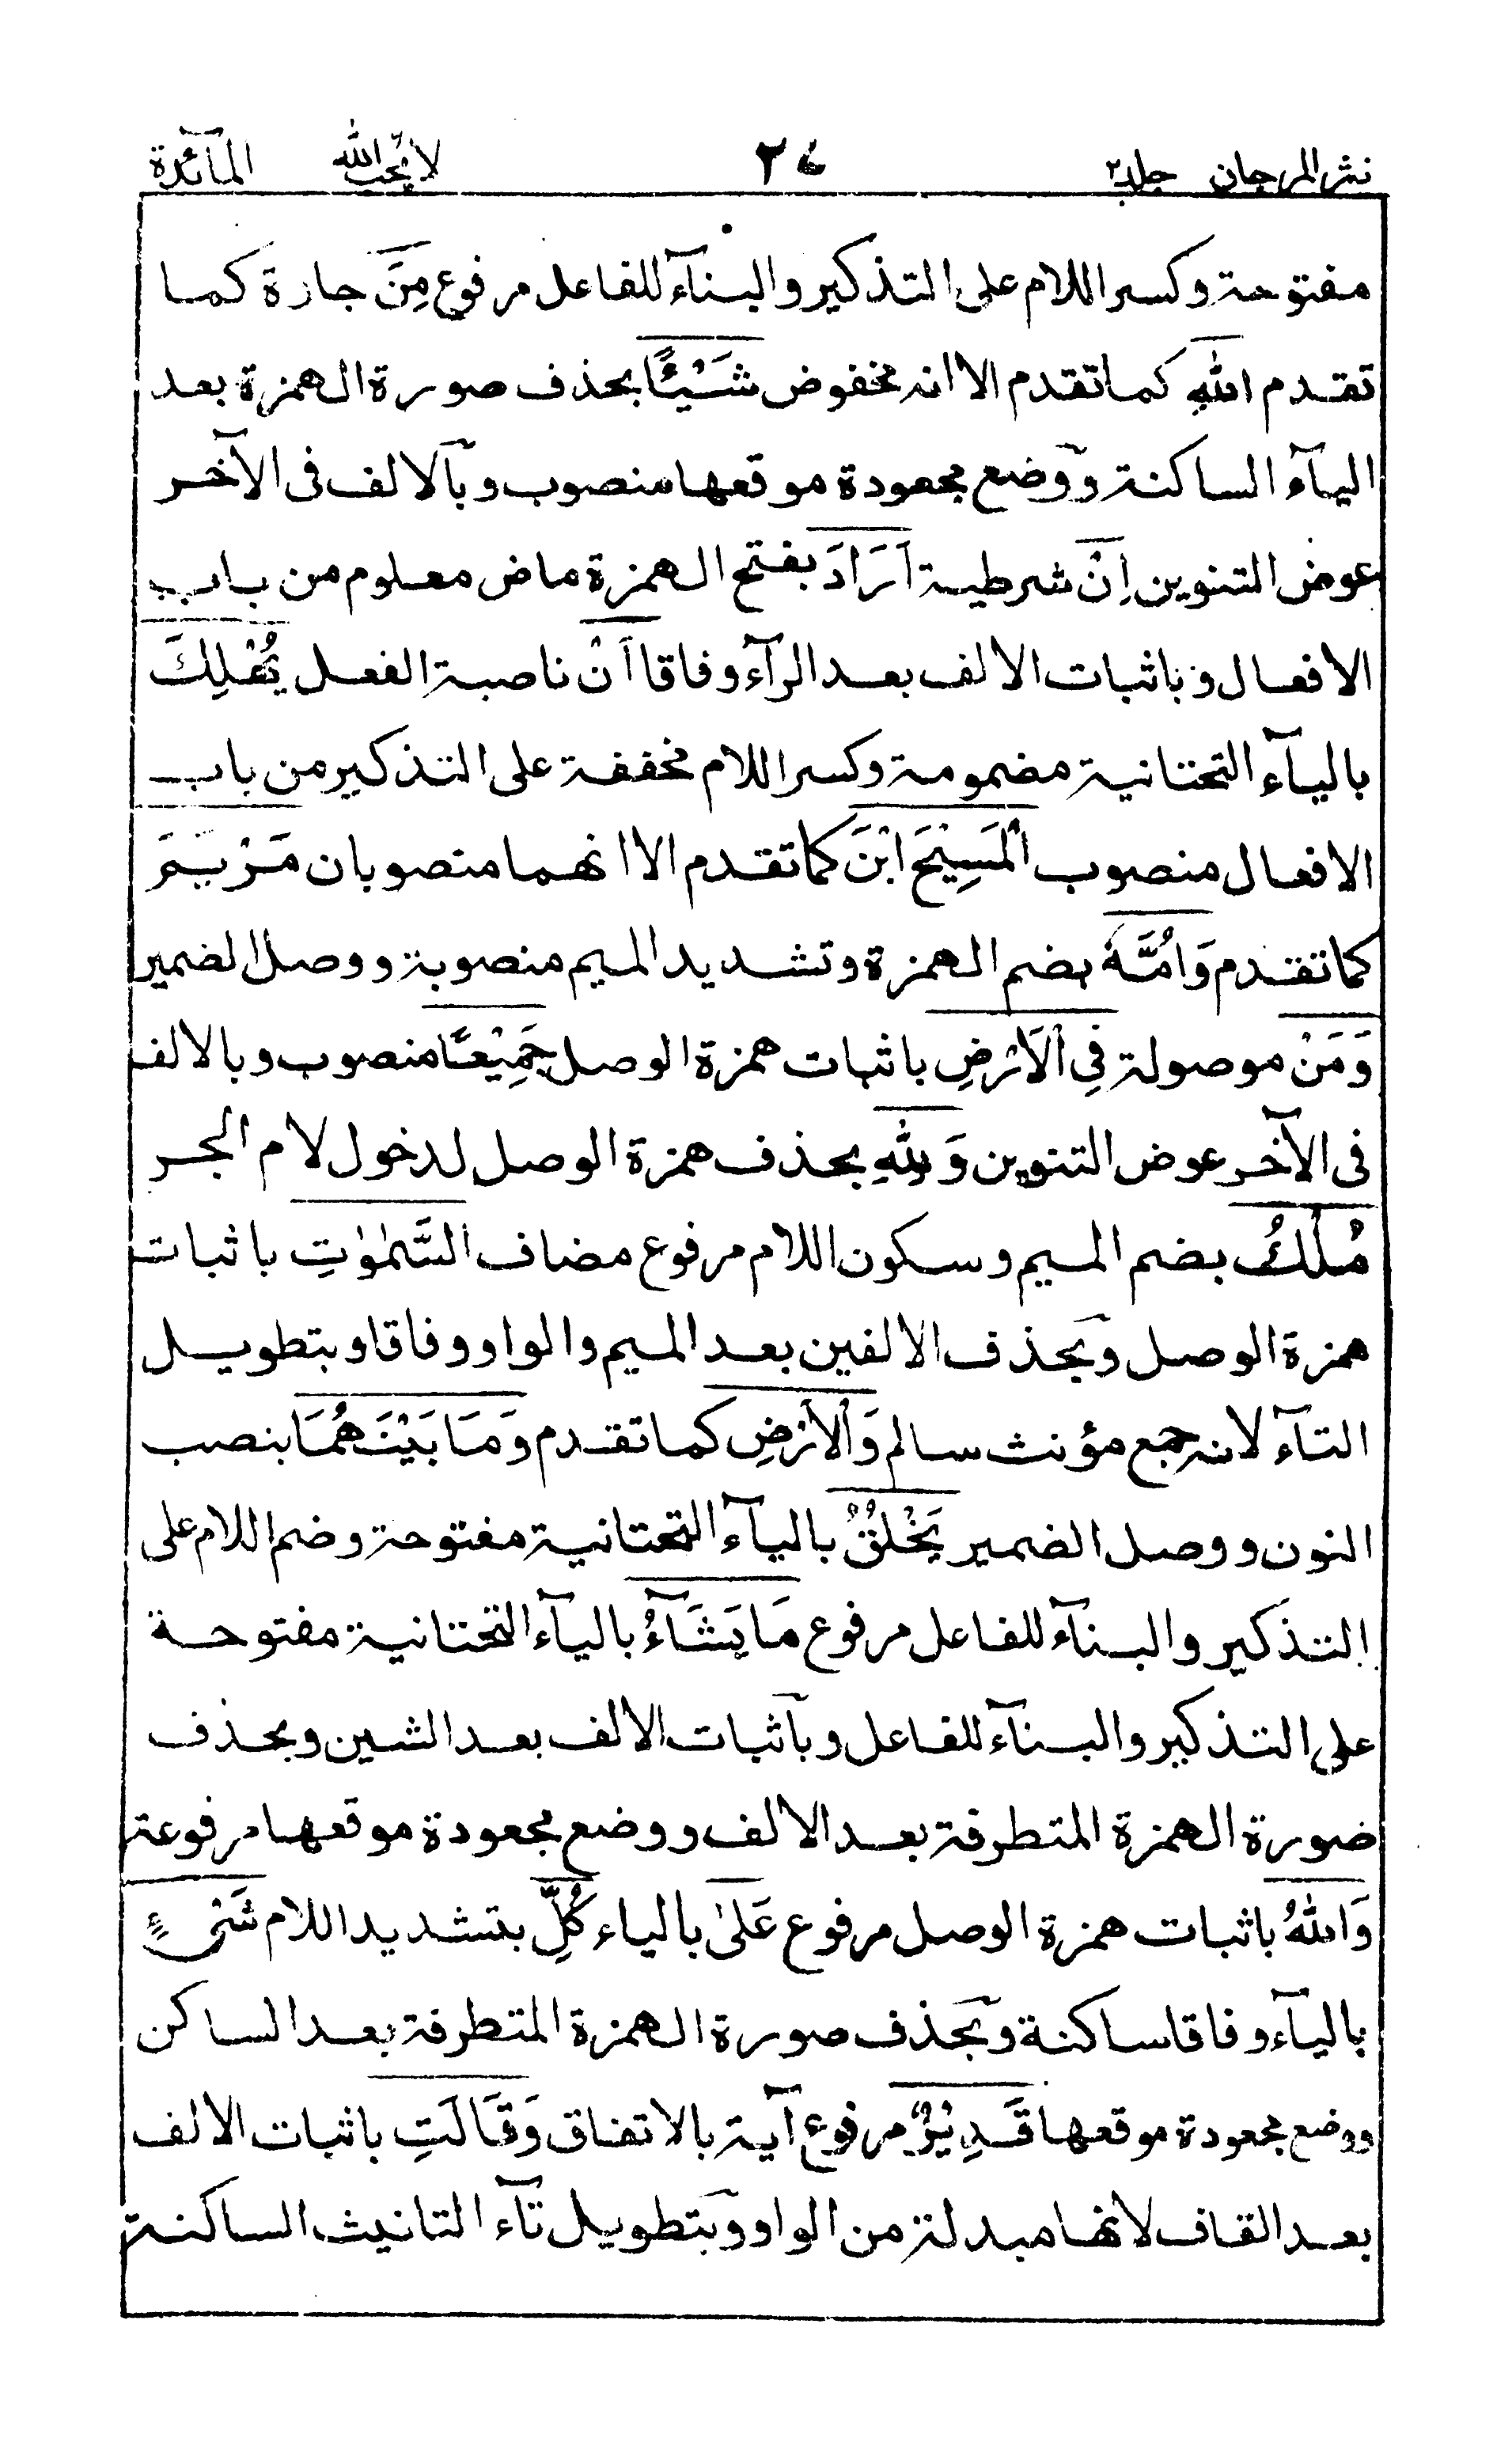 نثر المرجان جلد٢ ٢٧ لا يحب الله المآئدة
مفتوحة وكسر اللام على التذكير والبنآء للفاعل مرفوع مِنَ جارة كما
تقدم اللهِ كما تقدم الا انه مخفوض شَيْـًٔا بحذف صورة الهمزة بعد
اليآء الساكنة ووضع مجعودة موقعها منصوب وبالالف فى الآخر
عوض التنوين اِنْ شرطية اَرَادَ بفتح الهمزة ماض معلوم من باب
الافعال وباثبات الالف بعد الرآء وفاقا اَنْ ناصبة الفعل يُهْلِكَ
باليآء التحتانية مضمومة وكسر اللام مخففة على التذكير من باب
الافعال منصوب الْمَسِيْحَ ابْنَ كما تقدم الا انهما منصوبان مَرْيَمَ
كما تقدم وَاُمَّهٗ بضم الهمزة وتشديد الميم منصوبة ووصل الضمير
وَمَنْ موصولة فِى الْاَرْضِ باثبات همزة الوصل جَمِيْعًا منصوب وبالالف
فى الآخر عوض التنوين وَلِلهِ بحذف همزة الوصل لدخول لام الجر
مُلْكُ بضم الميم وسكون اللام مرفوع مضاف السَّمٰوٰتِ باثبات
همزة الوصل وبحذف الالفين بعد الميم والواو وفاقا وبتطويل
التآء لانه جمع مؤنث سالم وَالْاَرْضِ كما تقدم وَمَا بَيْنَهُمَا بنصب
النون ووصل الضمير يَخْلُقُ باليآء التحتانية مفتوحة وضم اللام على
التذكير والبنآء للفاعل مرفوع مَا يَشَآءُ باليآء التحتانية مفتوحة
على التذكير والبنآء للفاعل وباثبات الالف بعد الشين وبحذف
صورة الهمزة المتطرفة بعد الالف ووضع مجعودة موقعها مرفوعة
وَاللهُ باثبات همزة الوصل مرفوع عَلٰى بالياء كُلِّ بتشديد اللام شَىْءٍ
باليآء وفاقا ساكنة وبحذف صورة الهمزة المتطرفة بعد الساكن
ووضع مجعودة موقعها قَدِيْرٌ مرفوع آية بالاتفاق وَقَالَتِ باثبات الالف
بعد القاف لانها مبدلة من الواو وبتطويل تآء التانيث الساكنة